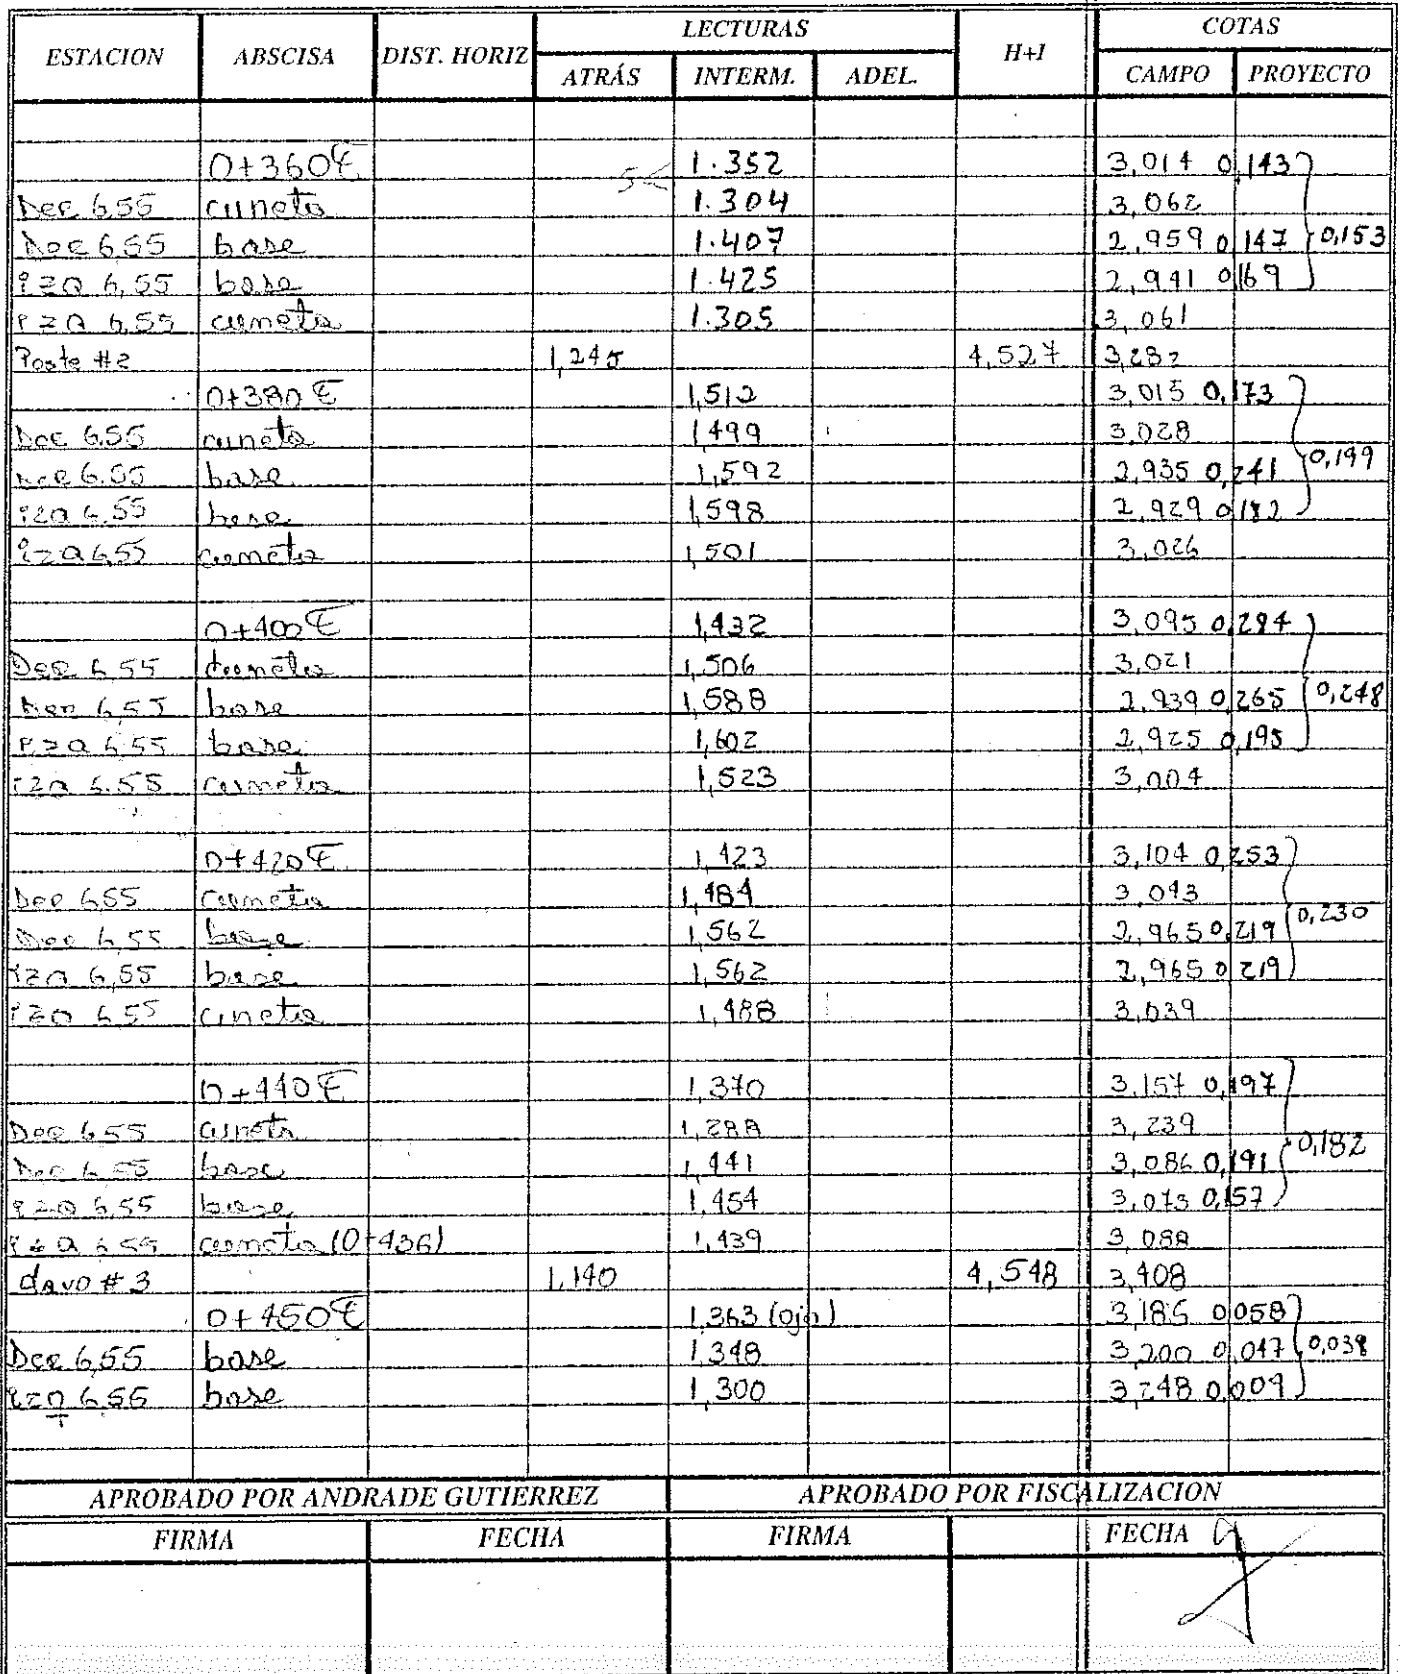 ESTACION ABSCISA DIST. HORIZ LECTURAS H+I COTAS
ATRÁS INTERM. ADEL. CAMPO PROYECTO
0+360 ℄ 1.352 3,014 0,143
Der 6,55 cuneta 1.304 3,062
Der 6,55 base 1.407 2,959 0,147 0,153
izq 6,55 base 1.425 2,941 0,169
izq 6,55 cuneta 1.305 3,061
Poste #2 1,245 4,527 3,282
0+380 ℄ 1,512 3,015 0,173
Der 6.55 cuneta 1,499 3,028
Der 6.55 base 1,592 2,935 0,241 0,199
izq 6.55 base 1,598 2,929 0,182
izq 6,55 cuneta 1,501 3,026
0+400 ℄ 1,432 3,095 0,284
Der 6,55 cuneta 1,506 3,021
Der 6,55 base 1,588 2,939 0,265 0,248
izq 6,55 base 1,602 2,925 0,195
izq 6.55 cuneta 1,523 3,004
0+420 ℄ 1,423 3,104 0,253
Der 6,55 cuneta 1,484 3,043
Der 6,55 base 1,562 2,965 0,219 0,230
izq 6,55 base 1,562 2,965 0,219
izq 6,55 cuneta 1,488 3,039
0+440 ℄ 1,370 3,157 0,197
Der 6,55 cuneta 1,288 3,239
Der 6,55 base 1,441 3,086 0,191 0,182
izq 6,55 base 1,454 3,073 0,157
izq 6,55 cuneta (0+436) 1,439 3,088
clavo #3 1,140 4,548 3,408
0+450 ℄ 1,363 (ojo) 3,185 0,058
Der 6,55 base 1,348 3,200 0,047 0,038
izq 6,55 base 1,300 3,248 0,009
APROBADO POR ANDRADE GUTIERREZ APROBADO POR FISCALIZACION
FIRMA FECHA FIRMA FECHA